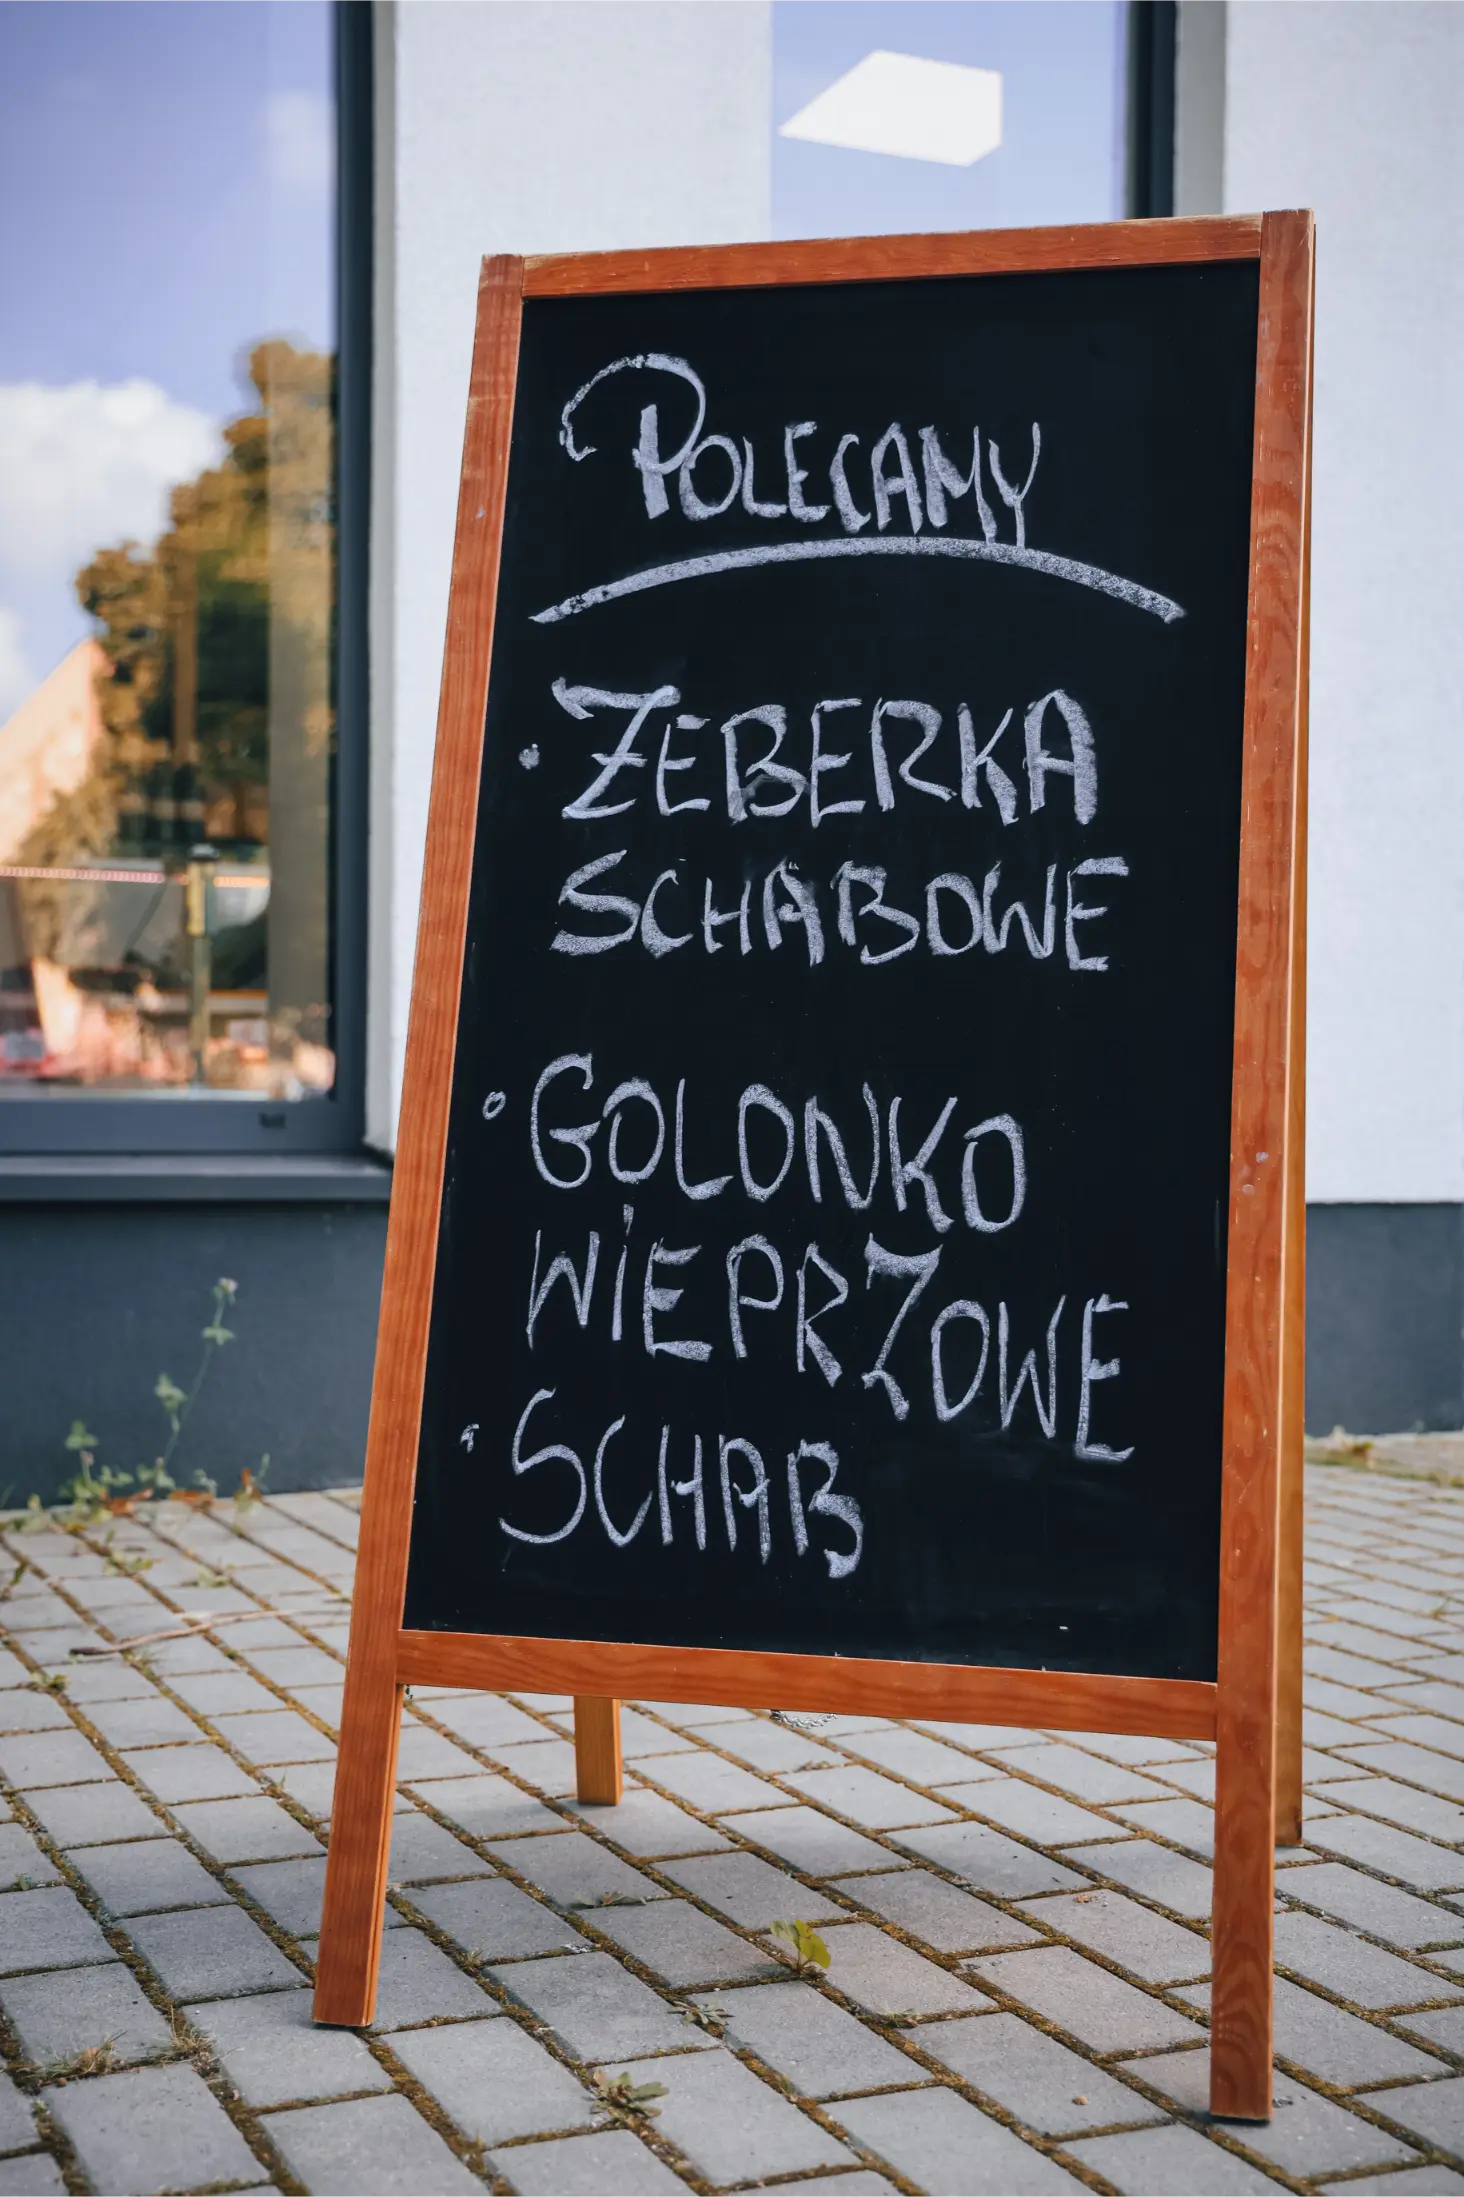 POLECAMY
• ŻEBERKA
SCHABOWE
• GOLONKO
WIEPRZOWE
• SCHAB